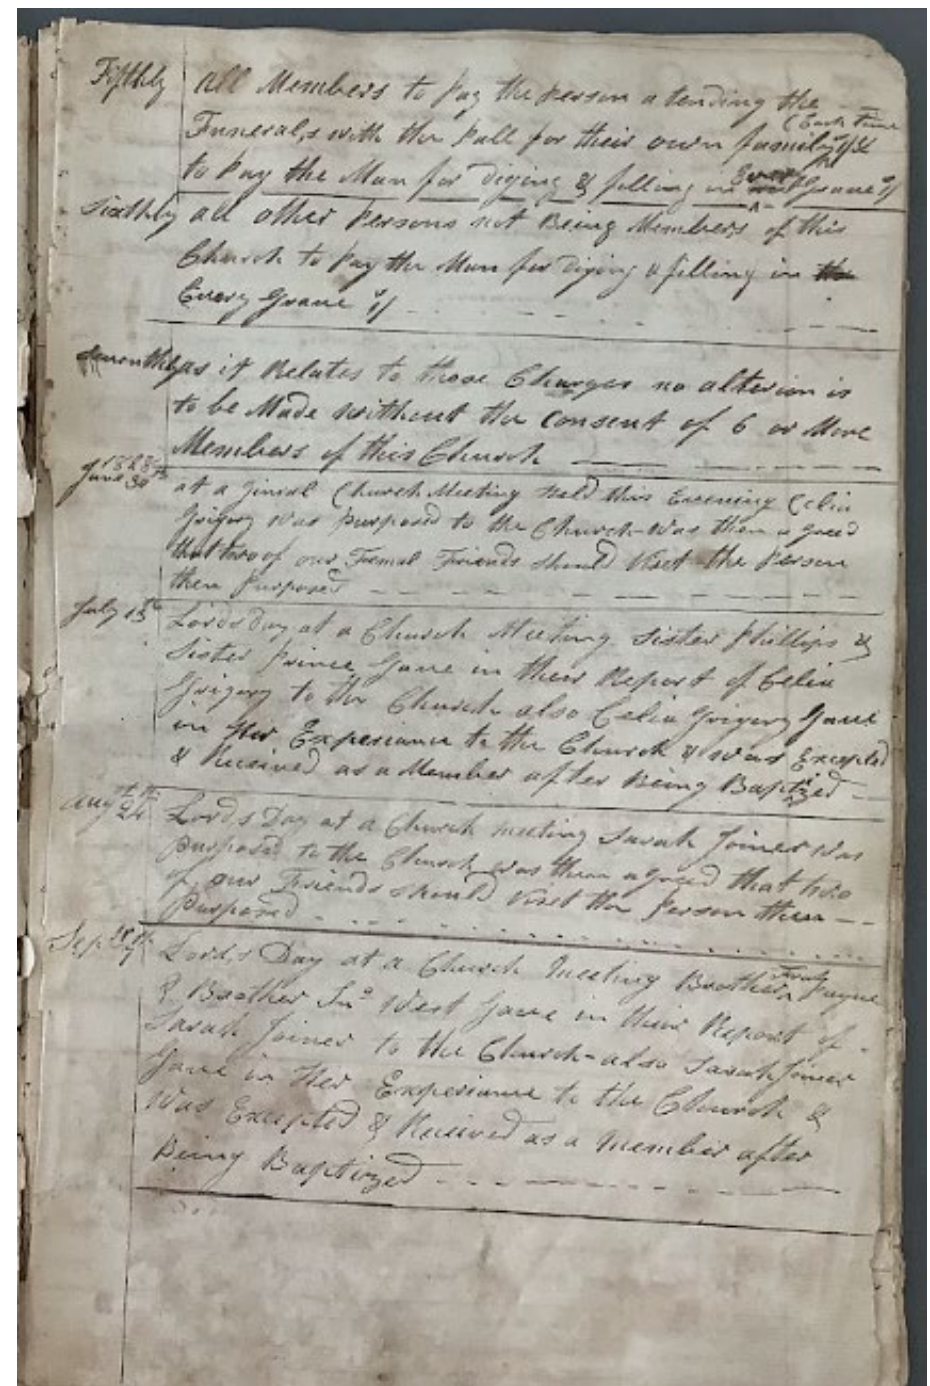 Fifthly all Members to Pay the Person atending the
(Each Time
Funerals with the Pall for their own family 1/
to Pay the Man for Diging & filling in Every Grave
Sixthly all other Persons not Being Members of this
Church to Pay the Man for Diging & filling in the
Every Grave
Seventhly as it Relates to those Charges no alterion is
to be Made without the Consent of 6 or More
Members of this Church
1828
June 30th at a Jinral Church Meeting held this Evening Celia
Grigory Was purposed to the Church - Was then agreed
that two of our Femal Friends should Viset the Person
then Purposed
July 13th Lords Day at a Church Meeting Sister Phillips &
Sister Prince Gave in their Report of Celia
Grigory to the Church also Celia Grigory Gave
in Her Experiance to the Church & was Excepted
& Received as a Member after Being Baptized
Augst 24th Lords Day at a Church meeting Sarah Joiner Was
Purposed to the Church was then agreed that two
of our Friends should Viset the Person then
Purposed
Sep Lords Day at a Church Meeting Brother Payne
& Brother Jno West Gave in their Report of
Sarah Joiner to the Church - also Sarah Joiner
Gave in Her Experiance to the Church &
Was Excepted & Received as a Member after
Being Baptized